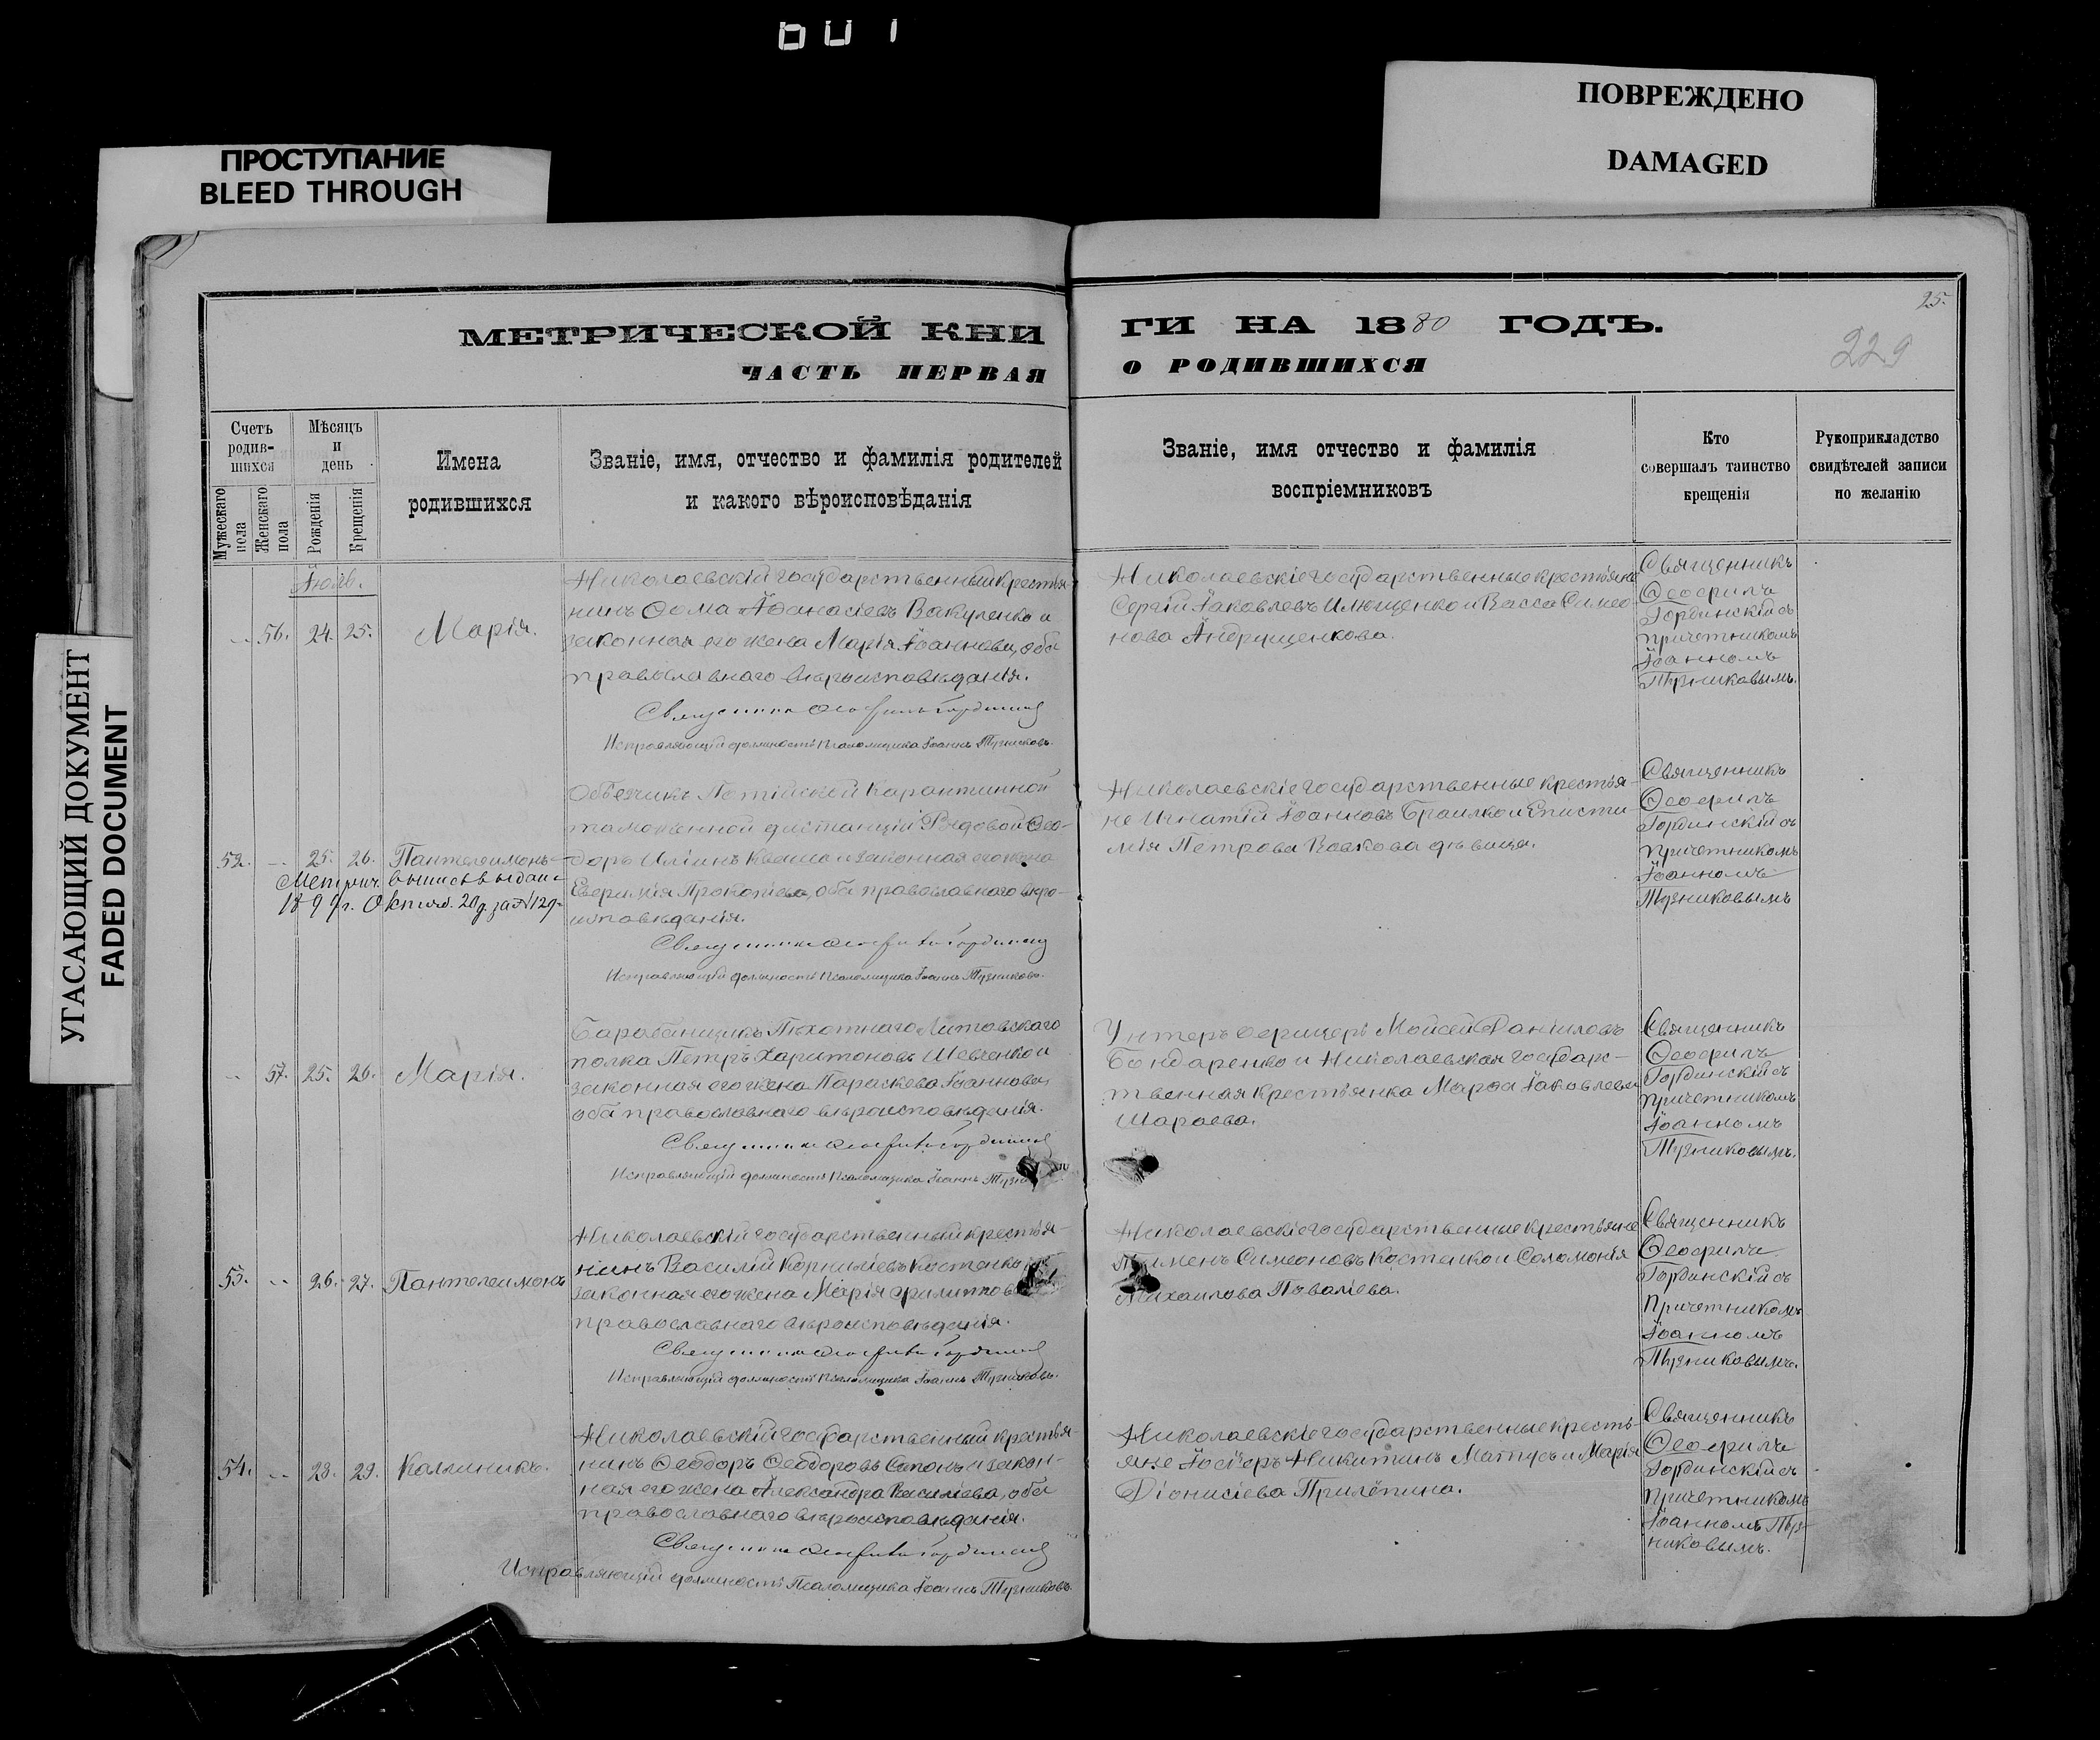 601
ПРОСТУПАНИЕ
BLEED THROUGH
ПОВРЕЖДЕНО
DAMAGED
УГАСАЮЩИЙ ДОКУМЕНТ
FADED DOCUMENT
25.
229
МЕТРИЧЕСКОЙ КНИ
ГИ НА 1880 ГОДЪ.
ЧАСТЬ ПЕРВАЯ
О РОДИВШИХСЯ
Счетъ
родив-
шихся
Мужескаго
пола
Женскаго
пола
Мѣсяцъ
и
день
Рожденія
Крещенія
Имена
родившихся
Званіе, имя, отчество и фамилія родителей
и какого вѣроисповѣданія
Званіе, имя отчество и фамилія
воспріемниковъ
Кто
совершалъ таинство
крещенія
Рукоприкладство
свидѣтелей записи
по желанію
Іюль.
-- 56. 24. 25. Марія.
Николаевскій государственный крестья-
нинъ Ѳома Аѳанасіевъ Вакуленко и
законная его жена Марія Іоаннова, оба
православнаго вѣроисповѣданія.
Священникъ Ѳеофилъ Гординскій
Исправляющій должность Псаломщика Іоаннъ Тузниковъ.
Николаевскіе государственные крестьяне
Сергій Іаковлевъ Илющенко и Васса Симео
нова Андрущенкова.
Священникъ
Ѳеофилъ
Гординскій съ
причетникомъ
Іоанномъ
Тузниковымъ.
52. -- 25. 26. Пантелеимонъ
Метрич. выпись выдана
1899 г. Октяб. 20 д. за № 129
Объезчикъ Потійской Карантинной
таможенной дистанціи Рядовой Ѳео-
доръ Иліинъ Кваша и законная его жена
Евфимія Прокопіева, оба православнаго вѣро-
исповѣданія.
Священникъ Ѳеофилъ Гординскій
Исправляющій должность Псаломщика Іоаннъ Тузниковъ.
Николаевскіе государственные крестья-
не Игнатій Іоанновъ Браилко и Еписти-
мія Петрова Козкова дѣвица.
Священникъ
Ѳеофилъ
Гординскій съ
причетникомъ
Іоанномъ
Тузниковымъ
-- 57. 25. 26. Марія.
Барабанщикъ Пѣхотнаго Литовскаго
полка Петръ Харитоновъ Шевченко и
законная его жена Параскева Іоаннова,
оба православнаго вѣроисповѣданія.
Священникъ Ѳеофилъ Гординскій
Исправляющій должность Псаломщика Іоаннъ Тузни
Унтеръ офицеръ Мойсей Даніиловъ
Бондаренко и Николаевская государс-
твенная крестьянка Марѳа Іаковлева
Шараева.
Священникъ
Ѳеофилъ
Гординскій съ
причетникомъ
Іоанномъ
Тузниковымъ.
53. -- 26. 27. Пантелеимонъ
Николаевскій государственный крестья-
нинъ Василій Корниліевъ Костенко и
законная его жена Марія Филиппова
православнаго вѣроисповѣданія.
Священникъ Ѳеофилъ Гординскій
Исправляющій должность Псаломщика Іоаннъ Тузниковъ.
Николаевскіе государственные крестьяне
Пименъ Симеоновъ Костенко и Соломонія
Михаилова Поваліева.
Священникъ
Ѳеофилъ
Гординскій съ
Причетникомъ
Іоанномъ
Тузниковымъ.
54. -- 28. 29. Каллиникъ.
Николаевскій государственный крестья-
нинъ Ѳеодоръ Ѳеодоровъ Сапонъ и закон-
ная его жена Александра Василіева, оба
православнаго вѣроисповѣданія.
Священникъ Ѳеофилъ Гординскій
Исправляющій должность Псаломщика Іоаннъ Тузниковъ.
Николаевскіе государственные кресть-
яне Іосифъ Никитинъ Матусъ и Марія
Діонисіева Прилѣпина.
Священникъ
Ѳеофилъ
Гординскій съ
причетникомъ
Іоанномъ Туз-
никовымъ.